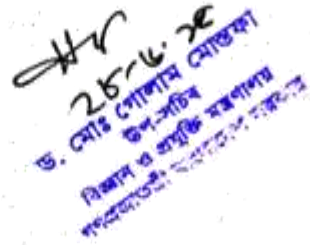 ড. মোঃ গোলাম মোস্তফা
উপ-সচিব
বিজ্ঞান ও প্রযুক্তি মন্ত্রণালয়
গণপ্রজাতন্ত্রী বাংলাদেশ সরকার